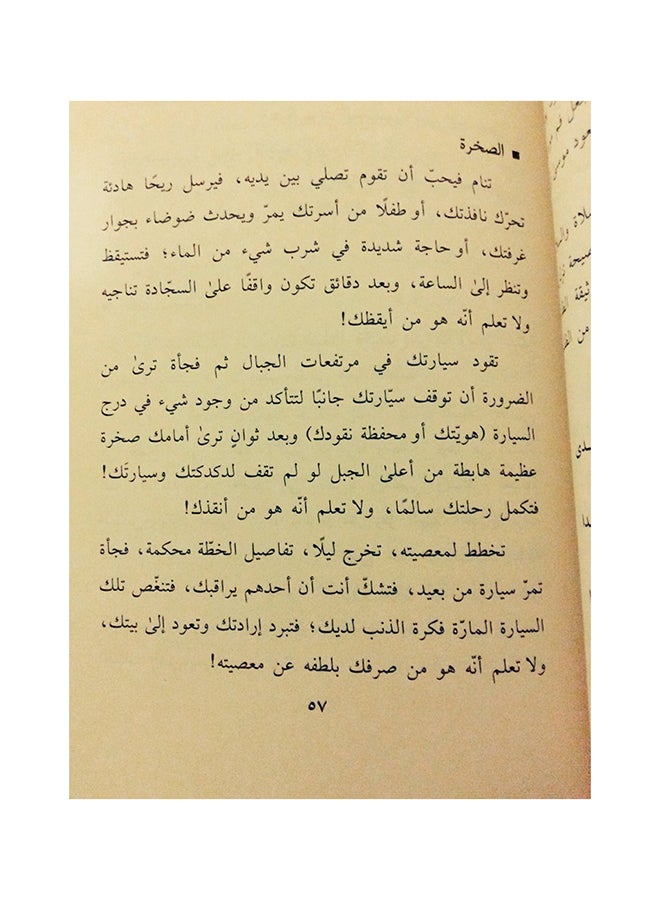 ▪ الصخرة
تنام فيحبّ أن تقوم تصلي بين يديه، فيرسل ريحًا هادئة
تحرّك نافذتك، أو طفلًا من أسرتك يمرّ ويحدث ضوضاء بجوار
غرفتك، أو حاجة شديدة في شرب شيء من الماء؛ فتستيقظ
وتنظر إلىٰ الساعة، وبعد دقائق تكون واقفًا علىٰ السجّادة تناجيه
ولا تعلم أنّه هو من أيقظك!
تقود سيارتك في مرتفعات الجبال ثم فجأة ترىٰ من
الضرورة أن توقف سيّارتك جانبًا لتتأكد من وجود شيء في درج
السيارة (هويّتك أو محفظة نقودك) وبعد ثوانٍ ترىٰ أمامك صخرة
عظيمة هابطة من أعلىٰ الجبل لو لم تقف لدكدكتك وسيارتَك!
فتكمل رحلتك سالمًا، ولا تعلم أنّه هو من أنقذك!
تخطط لمعصيته، تخرج ليلًا، تفاصيل الخطّة محكمة، فجأة
تمرّ سيارة من بعيد، فتشكّ أنت أن أحدهم يراقبك، فتنغّص تلك
السيارة المارّة فكرة الذنب لديك؛ فتبرد إرادتك وتعود إلىٰ بيتك،
ولا تعلم أنّه هو من صرفك بلطفه عن معصيته!
٥٧